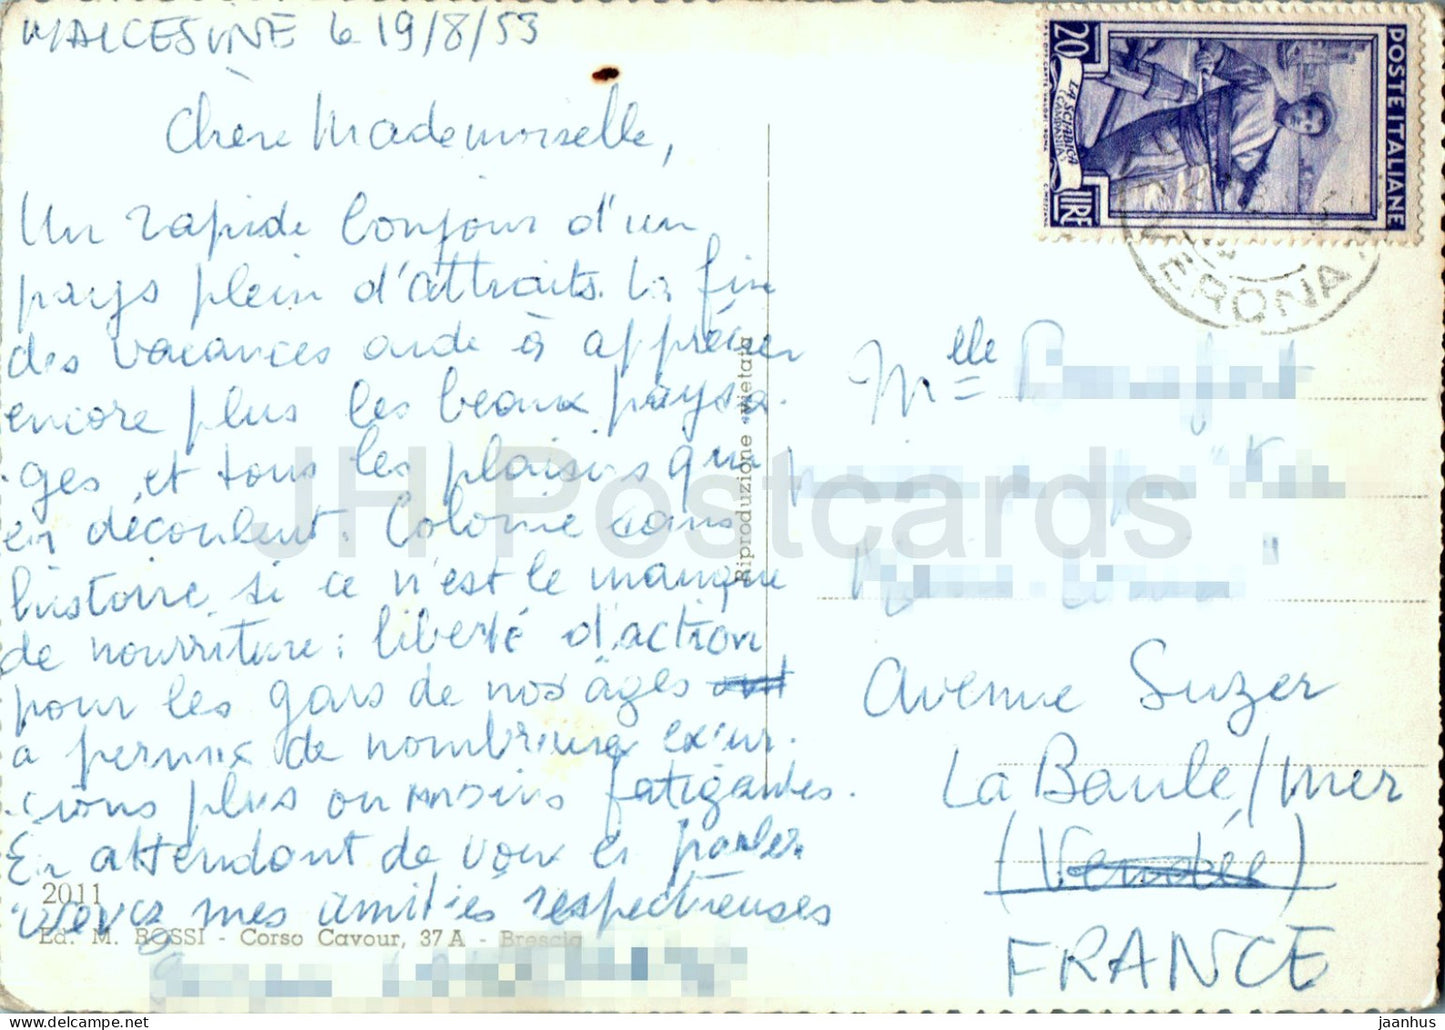 MALCESINE le 19/8/53
Chère Mademoiselle,
Un rapide bonjour d'un
pays plein d'attraits. La fin
des vacances aide à apprécier
encore plus les beaux paysa-
ges et tous les plaisirs qui
en découlent. Colonie sans
histoire, si ce n'est le manque
de nourriture : liberté d'action
pour les gars de nos âges
a permis de nombreuses excur-
sions plus ou moins fatigantes.
En attendant de vous en parler
recevez mes amitiés respectueuses
2011
Ed. M. ROSSI - Corso Cavour, 37 A - Brescia
Riproduzione vietata
POSTE ITALIANE
20
LIRE
LA SCIABICA
(CAMPANIA)
VERONA
Mlle
Avenue Suzer
La Baule/mer
(Vendée)
FRANCE
JH Postcards
http://www.jhpostcards.com
jaanhun